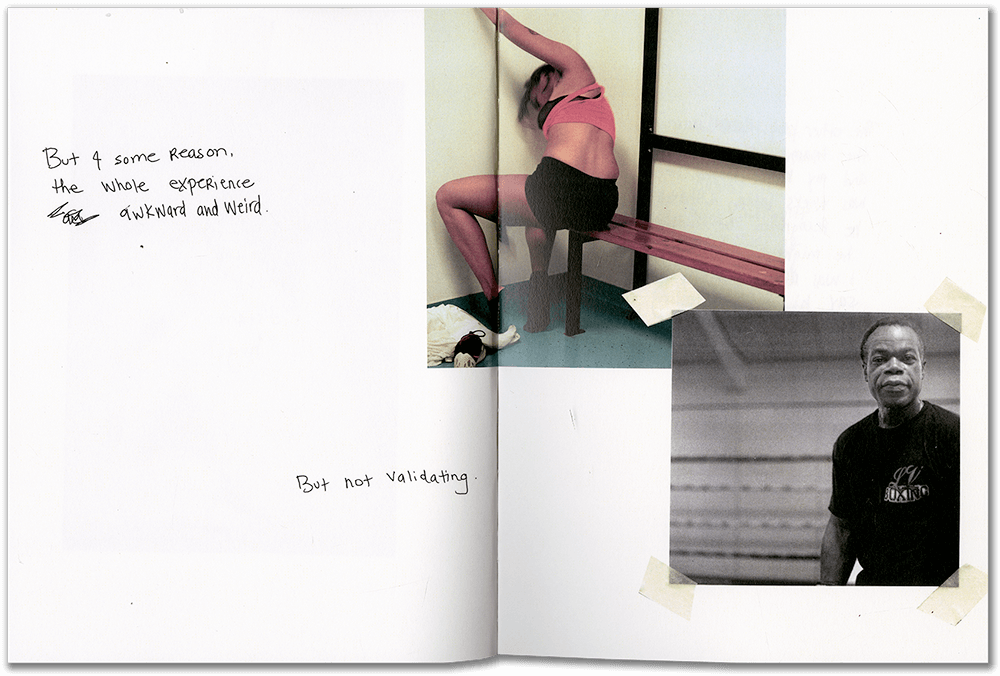 But 4 some Reason,
the whole experience
awkward and Weird.
But not Validating.
JV
BOXING